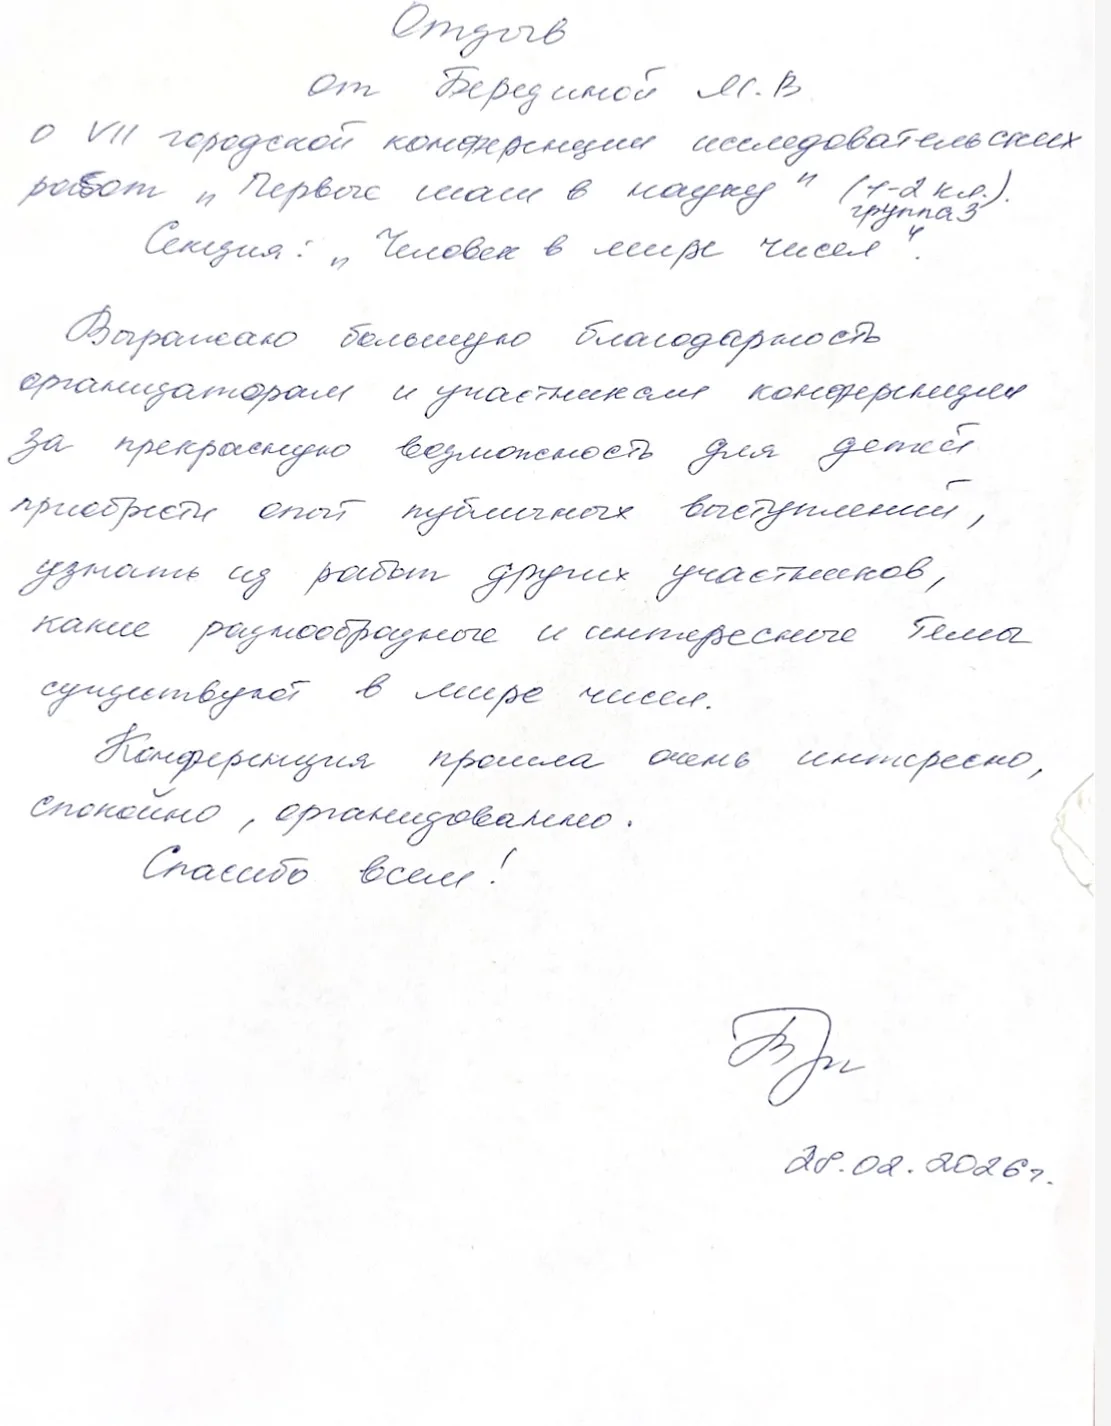 Отзыв
от Берединой М.В.
о VII городской конференции исследовательских
работ „Первые шаги в науку" (1-2 кл.).
группа 3
Секция: „Человек в мире чисел".
Выражаю большую благодарность
организаторам и участникам конференции
за прекрасную возможность для детей
приобрести опыт публичных выступлений,
узнать из работ других участников,
какие разнообразные и интересные темы
существуют в мире чисел.
Конференция прошла очень интересно,
спокойно, организованно.
Спасибо всем!
28.02.2026г.